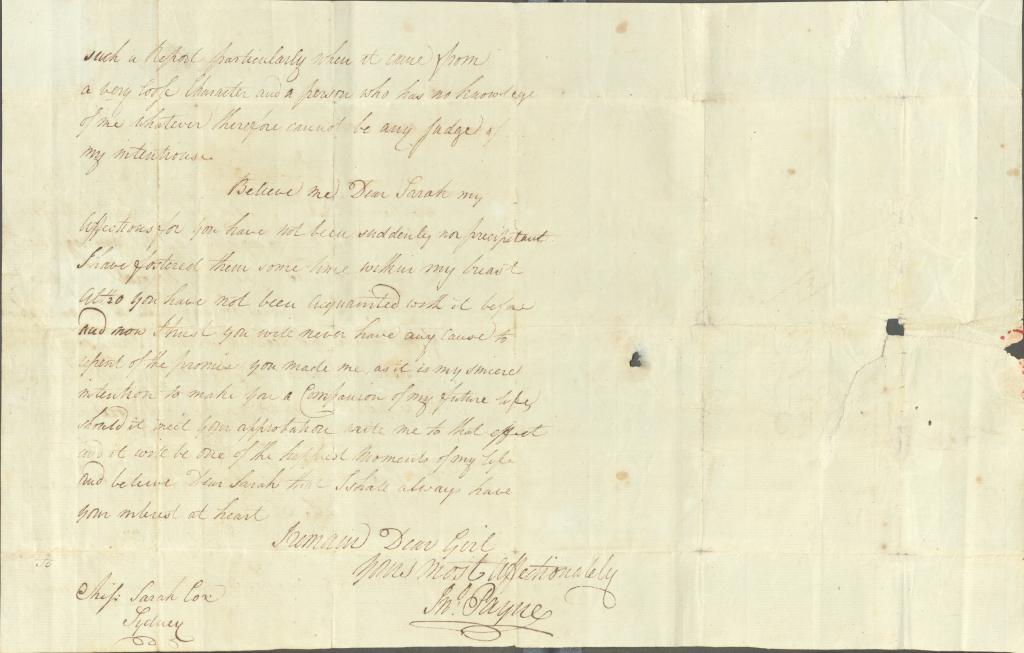 such a Report particularly when it came from
a very loose Character and a person who has no knowlege
of me whatever therefore cannot be any Judge of
my intentions.
Believe me Dear Sarah my
Affections for you have not been suddenly nor precipitant
I have fostered them some time within my breast
Altho you have not been acquainted with it before
and now I trust you will never have any cause to
repent of the promise you made me, as it is my sincere
intention to make you a Companion of my future life,
should it meet your approbation write me to that effect
and it will be one of the happiest Moments of my life
And believe Dear Sarah that I shall always have
your interest at heart
I remain Dear Girl
yours most Affectionately
Jno. Payne
To
Miss Sarah Cox
Sydney